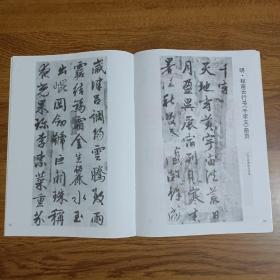 千字文
天地玄黃宇宙洪荒日
月盈昃辰宿列張寒來
暑往秋收冬藏閏餘成
歲律呂調陽雲騰致雨
露結為霜金生麗水玉
出崐岡劍號巨闕珠稱
夜光果珍李柰菜重芥